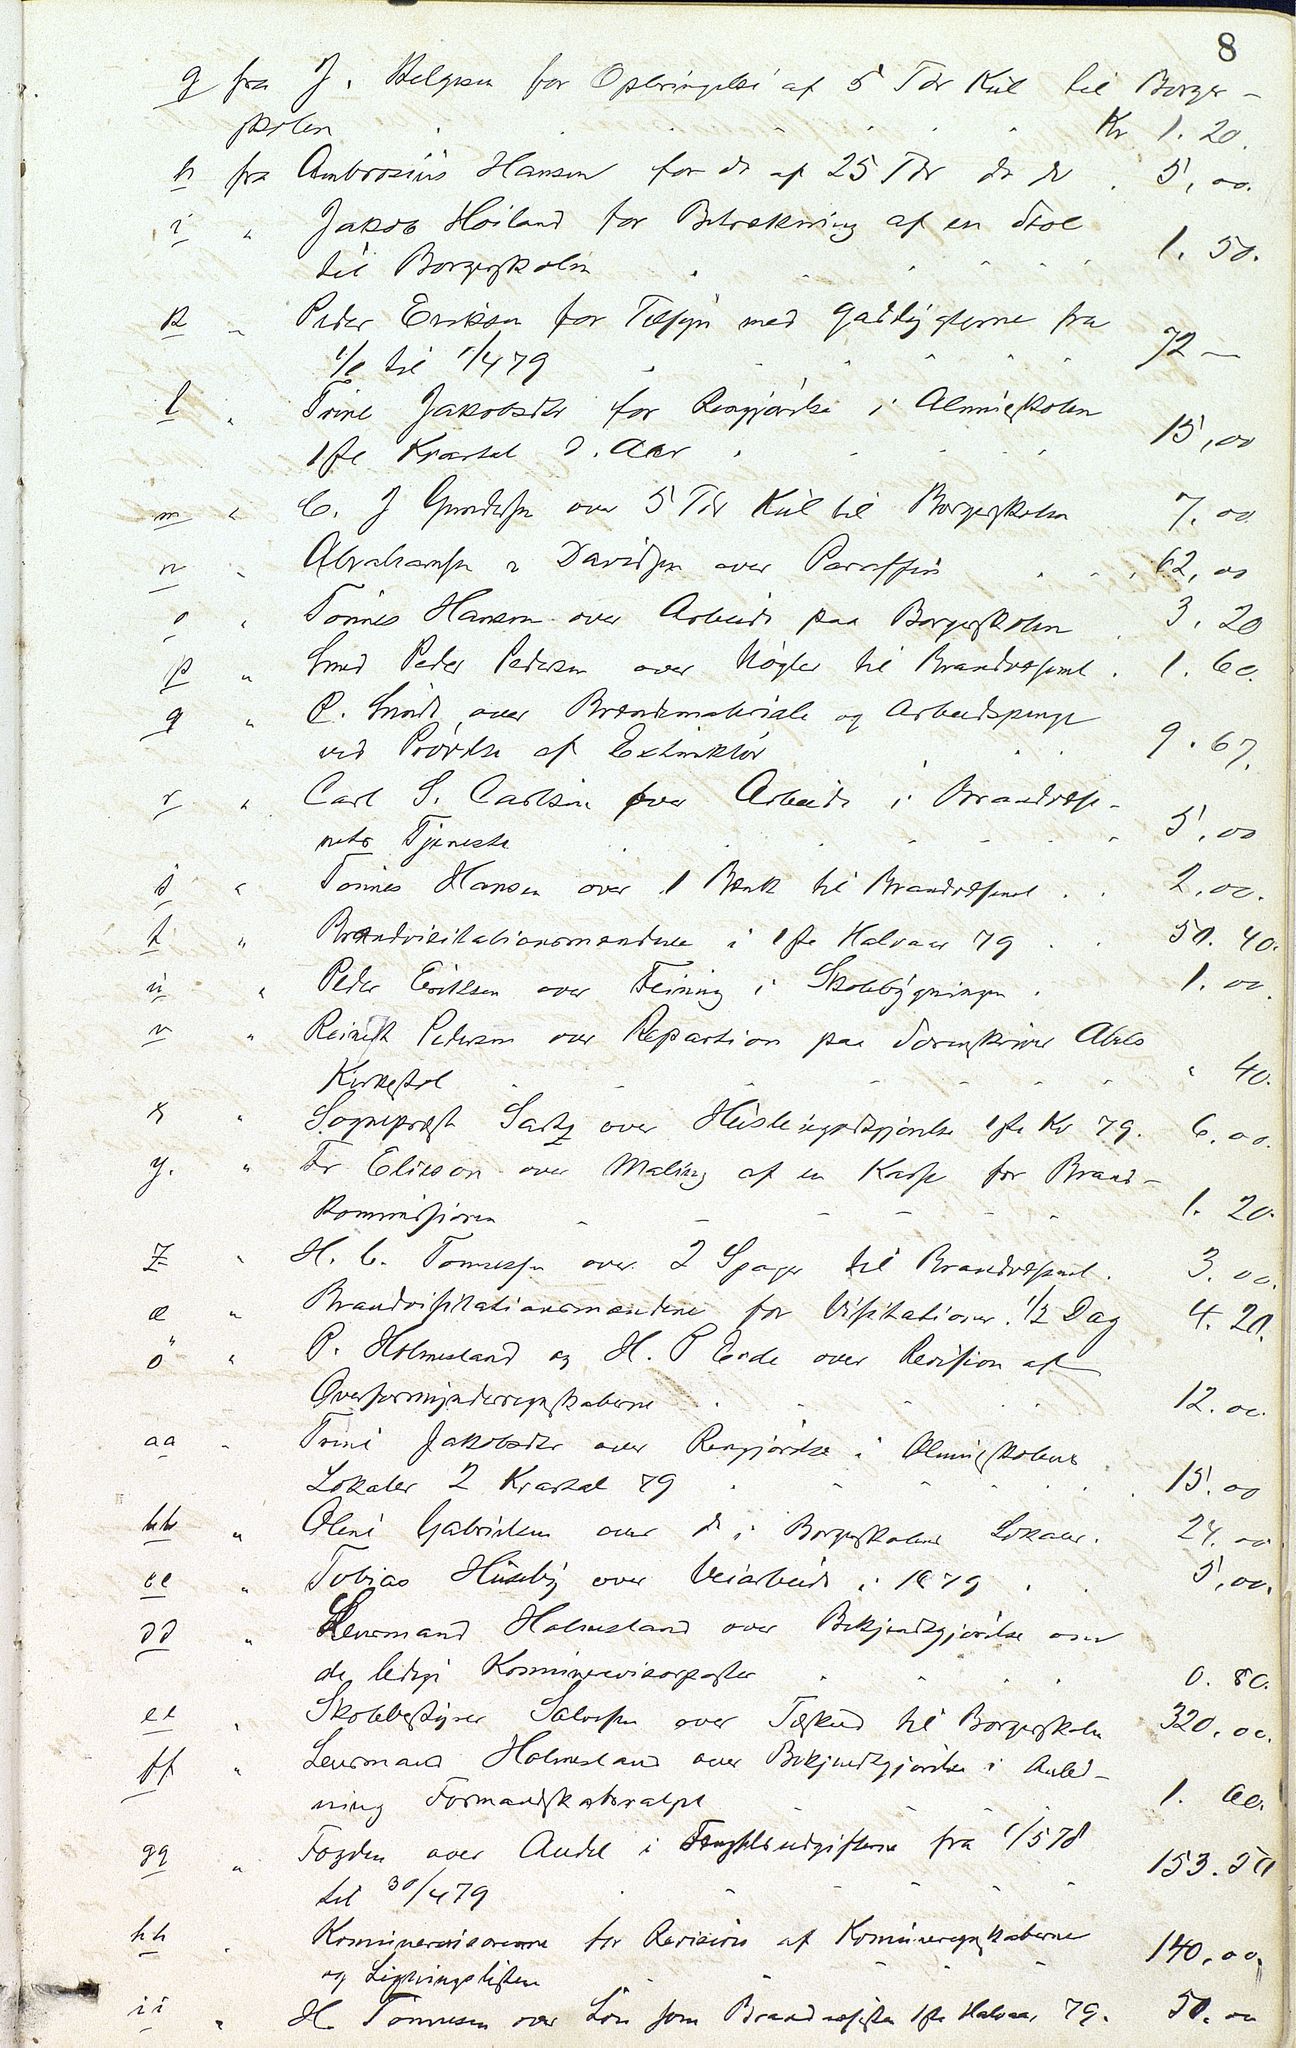 8
g fra J. Helgesen for Opbringelse af 5 Tdr Kul til Borger-
skolen Kr 1. 20.
h fra Ambrosius Hansen for do af 25 Tdr do do 5,00.
i " Jakob Høiland for Betrækning af en Stol
til Borgerskolen 1. 50.
k " Peder Eriksen for Tilsyn med Gadelygterne fra
1/1 til 1/4 79 72 —
l " Trine Jakobsdtr for Rengjørelse i Almueskolen
1ste Kvartal d. Aar 15,00
m " C. J Gundersen over 5 Tdr Kul til Borgerskolen 7.00
n " Abrahamsen & Davidsen over Paraffin 62,00
o " Tønnes Hansen over Arbeide paa Borgerskolen 3. 20
p " Smed Peder Pedersen over Nøgler til Brandvæsenet. 1. 60.
q " P. Smidt over Brændemateriale og Arbeidspenge
ved Prøvelse af Extinktør 9. 67.
r " Carl S. Carlsen over Arbeide i Brandvæse-
nets Tjeneste 5,00
s " Tønnes Hansen over 1 Bænk til Brandvæsenet 2,00.
t " Brandvisitationsmændene i 1ste Halvaar 79 50. 40.
u " Peder Eriksen over Feining i Skolebygningen 1.00.
v " Reinert Pedersen over Repartion paa Sorenskriver Abels
Kirkestol " 40.
x " Sogneprest Sartz over Husleiegodtgjørelse 1ste Kv 79. 6.00.
y. " Fr Elieson over Maling af en Kasse for Brand-
kommissionen 1. 20.
z " H. C. Tønnessen over 2 Spager til Brandvæsenet. 3.00.
æ " Brandvisitationsmændene for Visitationer. 1/2 Dag 4. 20.
ö " P. Holmesland og H. P Eede over Revision af
Overformynderregnskaberne 12.00.
aa " Trine Jakobsdtr over Rengjørelse i Almueskolens
Lokaler 2 Kvartal 79 15.00
bb " Oline Gabrielsen over do i Borgerskolens Lokaler. 24.00
cc " Tobias Huseby over Veiarbeide i 1879 5,00.
dd " Lensmand Holmesland over Bekjendtgjørelse om
de ledige Kommunerevisorposter 0. 80.
ee " Skolebestyrer Salvesen over Tilskud til Borgerskolen 320.00.
ff " Lensmand Holmesland over Bekjendtgjørelse i Anled-
ning Formandskabsvalget 1. 60.
gg " Fogden over Andel i Fængselsudgifterne fra 1/5 78
til 30/4 79 153. 50
hh " Kommunerevisorerne for Revision af Kommuneregnskaberne
og Ligningslisten 140,00.
ii " H. Tønnesen over Løn som Brandmester 1ste Halvaar 79. 50.00